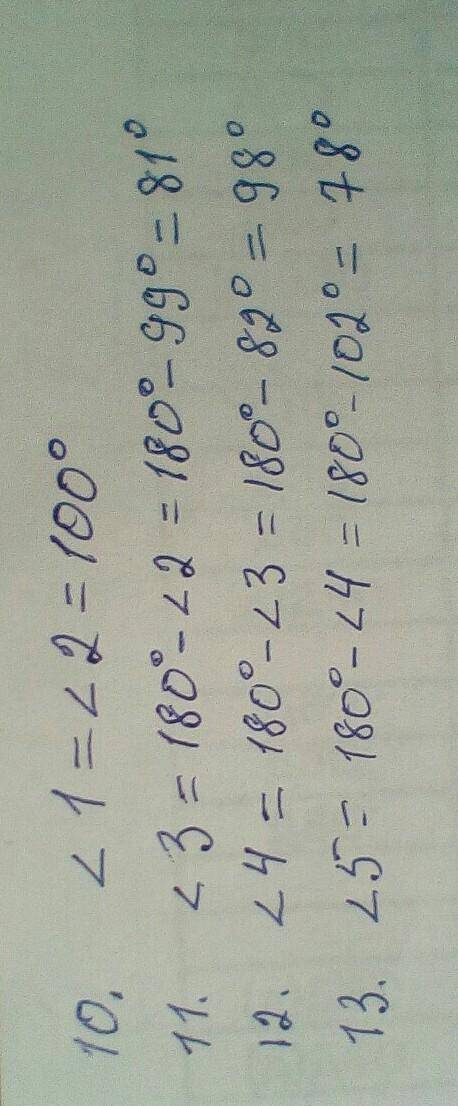 10. <1 = <2 = 100°
11. <3 = 180° - <2 = 180° - 99° = 81°
12. <4 = 180° - <3 = 180° - 82° = 98°
13. <5 = 180° - <4 = 180° - 102° = 78°